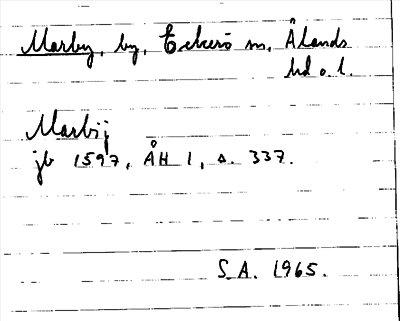 Marby, by, Eckerö sn, Ålands
hd o. l.
Marbij
jb 1597, ÅH 1, s. 337.
S.A. 1965.